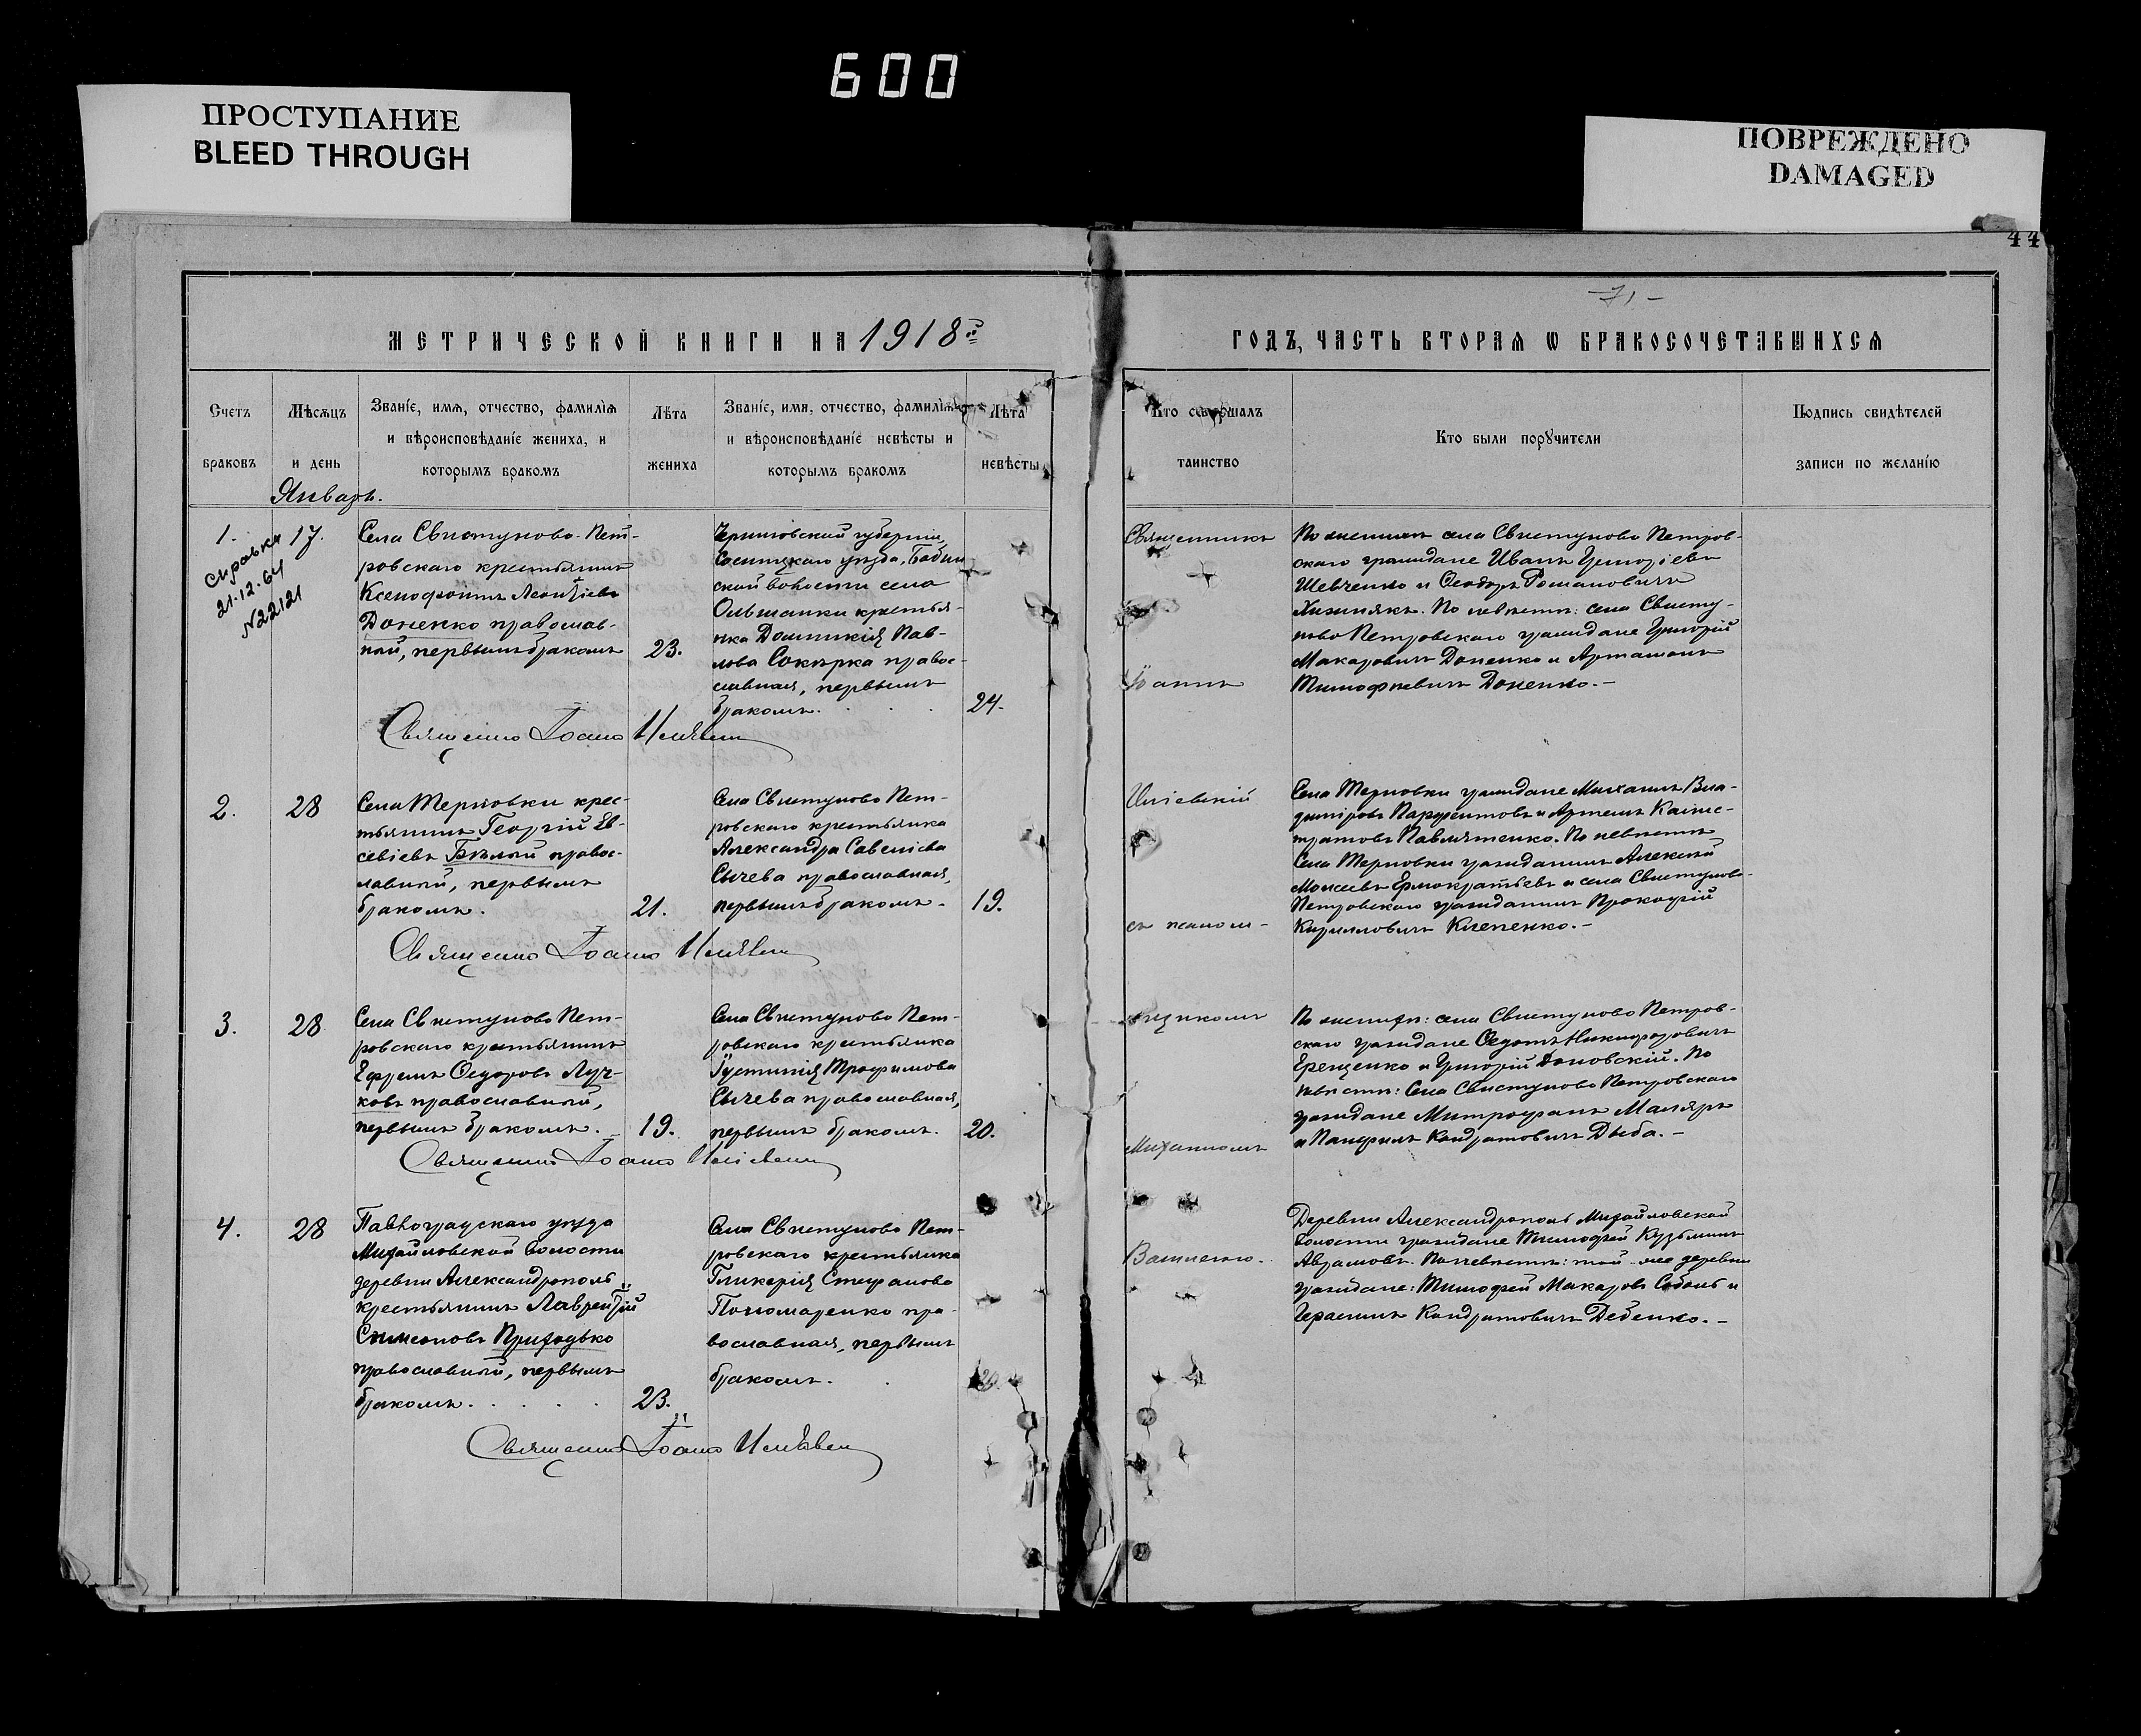 600
ПРОСТУПАНИЕ
BLEED THROUGH
ПОВРЕЖДЕНО
DAMAGED
44
71 -
МЕТРИЧЕСКОЙ КНИГИ НА 1918 й
ГОДЪ, ЧАСТЬ ВТОРАѦ Ѡ БРАКОСОЧЕТАВШИХСѦ
Счетъ
браковъ
Мѣсѧцъ
и день
Званіе, имѧ, отчество, фамилїѧ
и вѣроисповѣданіе жениха, и
которымъ бракомъ
Лѣта
жениха
Званіе, имя, отчество, фамилїѧ
и вѣроисповѣданіе невѣсты и
которымъ бракомъ
Лѣта
невѣсты
Кто совершалъ
таинство
Кто были порꙋчители
Подпись свидѣтелей
записи по желанію
Январь.
1.
Справка
21.12.64
N22121
17.
Села Свистуново-Пет-
ровскаго крестьянинъ
Ксенофонтъ Леонтіевъ
Доненко православ-
ный, первымъ бракомъ
23.
Черниговской губерніи,
Сосницкаго уѣзда, Бабин
ской волости села
Ольшанки крестья-
нка Домникія Пав-
лова Сокирка правос-
лавная, первымъ
бракомъ.
24.
Священникъ
Іоаннъ
По женихѣ села Свистуново Петров-
скаго граждане Иванъ Григоріевъ
Шевченко и Ѳеодоръ Романовичъ
Хижнякъ. По невѣстѣ: села Свисту-
ново Петровскаго граждане Григорій
Макаровичъ Доненко и Артамонъ
Тимофѣевичъ Доненко. –
Священникъ Іоаннъ Ильевск
2.
28
Села Терновки крес-
тьянинъ Георгій Ев-
севіевъ Бѣлый правос-
лавный, первымъ
бракомъ.
21.
Села Свистуново Пет-
ровскаго крестьянка
Александра Савеліева
Сычева православная,
первымъ бракомъ.
19.
Иліевскій
съ псалом-
Села Терновки граждане Михаилъ Вла-
диміровъ Парфентовъ и Артемъ Калис-
тратовъ Павлятенко. По невѣстѣ
Села Терновки гражданинъ Алексѣй
Моисеевъ Ермократьевъ и села Свистуново-
Петровскаго гражданинъ Прокофій
Кирилловичъ Клепенко. –
Священникъ Іоаннъ Ильевск
3.
28
Села Свистуново Пет-
ровскаго крестьянинъ
Ефремъ Ѳедоровъ Луч-
ковъ православный,
первымъ бракомъ.
19.
Села Свистуново Пет-
ровскаго крестьянка
Іустинія Трофимова
Сычева православная,
первымъ бракомъ.
20.
щикомъ
Михаиломъ
По женихѣ: села Свистуново Петров-
скаго граждане Ѳедотъ Никифоровичъ
Ерещенко и Григорій Доновскій. По
невѣстѣ: Села Свистуново Петровскаго
граждане Митрофанъ Маляръ
и Панфилъ Кондратовичъ Дыба. –
Священникъ Іоаннъ Иліевск
4.
28
Павлоградскаго уѣзда
Михайловской волости
деревни Александрополь
крестьянинъ Лаврентій
Симеоновъ Приходько
православный, первымъ
бракомъ.
23.
Села Свистуново Пет-
ровскаго крестьянка
Гликерія Стефанова
Пономаренко пра-
вославная, первымъ
бракомъ.
20.
Василенко.
Деревни Александрополь Михайловской
волости граждане Тимофей Кузьминъ
Аврамовъ. По невѣстѣ: той-же деревни
граждане: Тимофей Макаровъ Соболь и
Герасимъ Кондратовичъ Дебенко. –
Священникъ Іоаннъ Ильевск